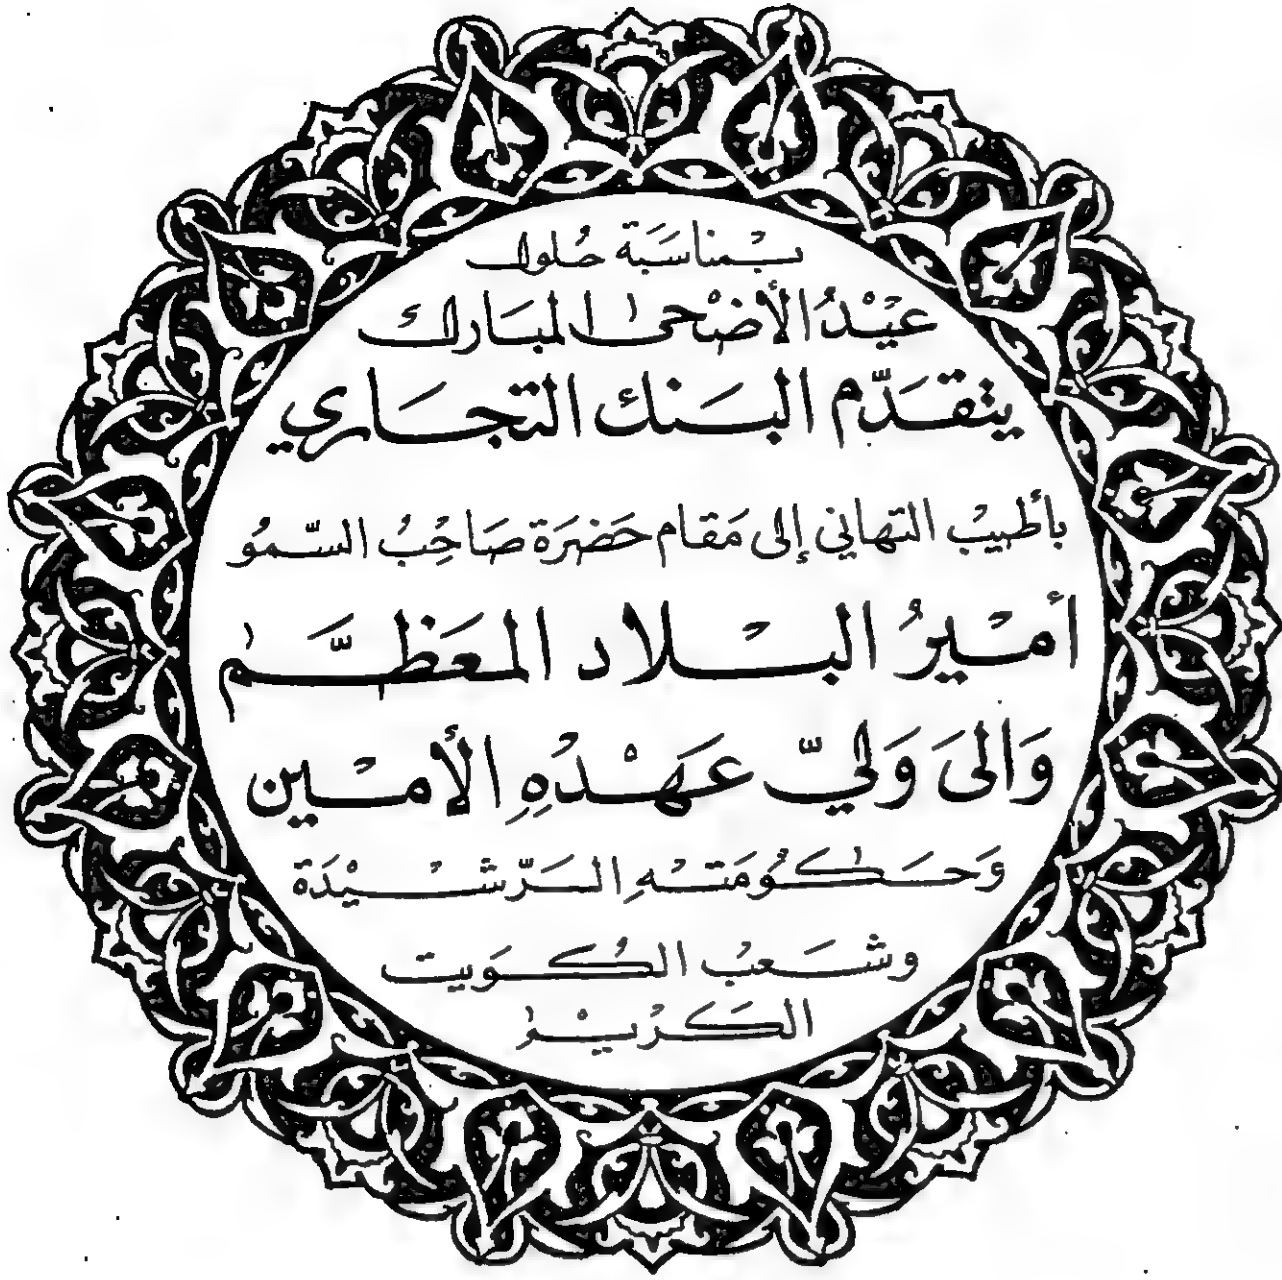 بمناسَبَة حُلول
عيْدُ الأضْحى المبَارك
يتقدَّم البَنك التجَاري
بأطيبْ التهاني إلى مَقام حَضرَة صَاحِبُ السّمُو
أمْيرُ البْلاد المعَظَّم
وَالىَ وَليّ عَهْدُهِ الأمْين
وَحَكُومَتْهِ الرَّشْيْدَة
وشَعبُ الكُوَيت
الكَرُيْم